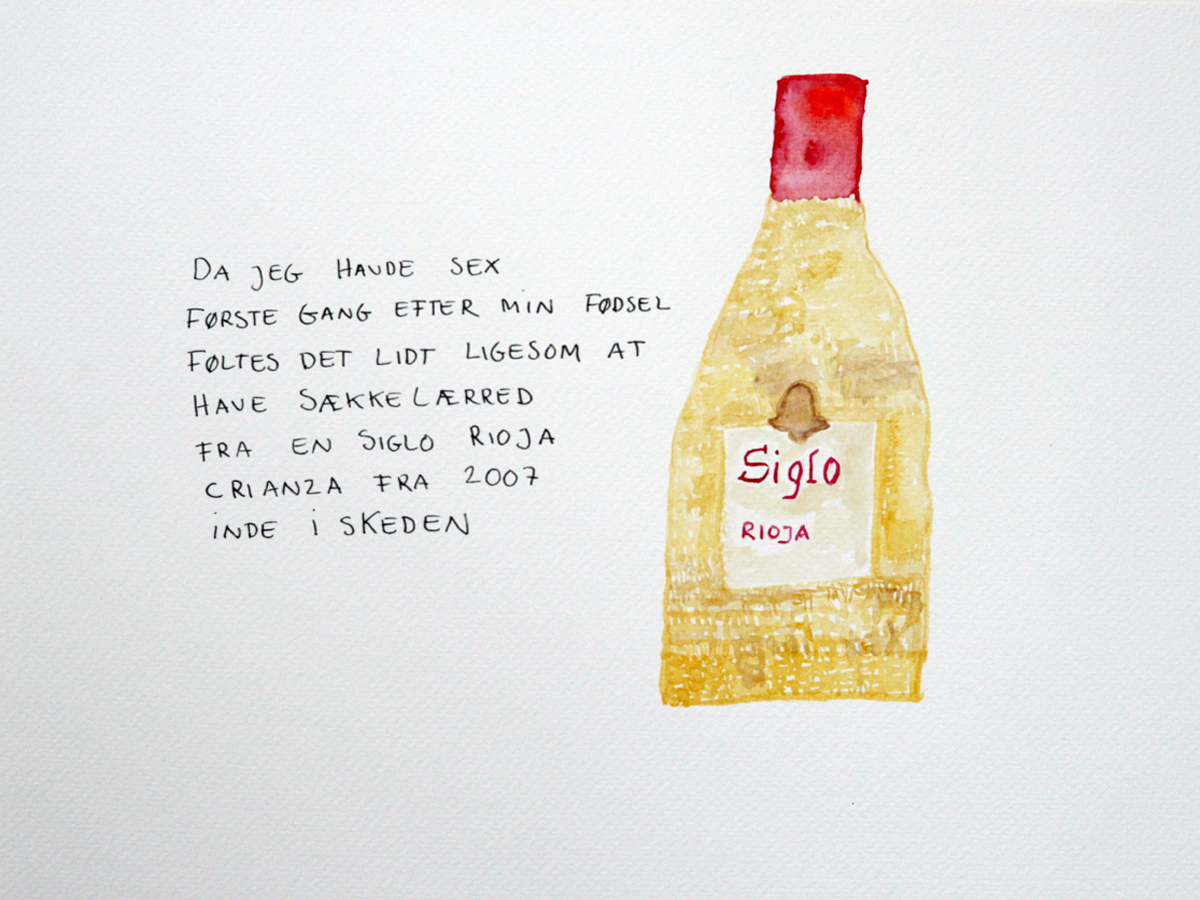 DA JEG HAVDE SEX
FØRSTE GANG EFTER MIN FØDSEL
FØLTES DET LIDT LIGESOM AT
HAVE SÆKKELÆRRED
FRA EN SIGLO RIOJA
CRIANZA FRA 2007
INDE I SKEDEN
Siglo
RIOJA